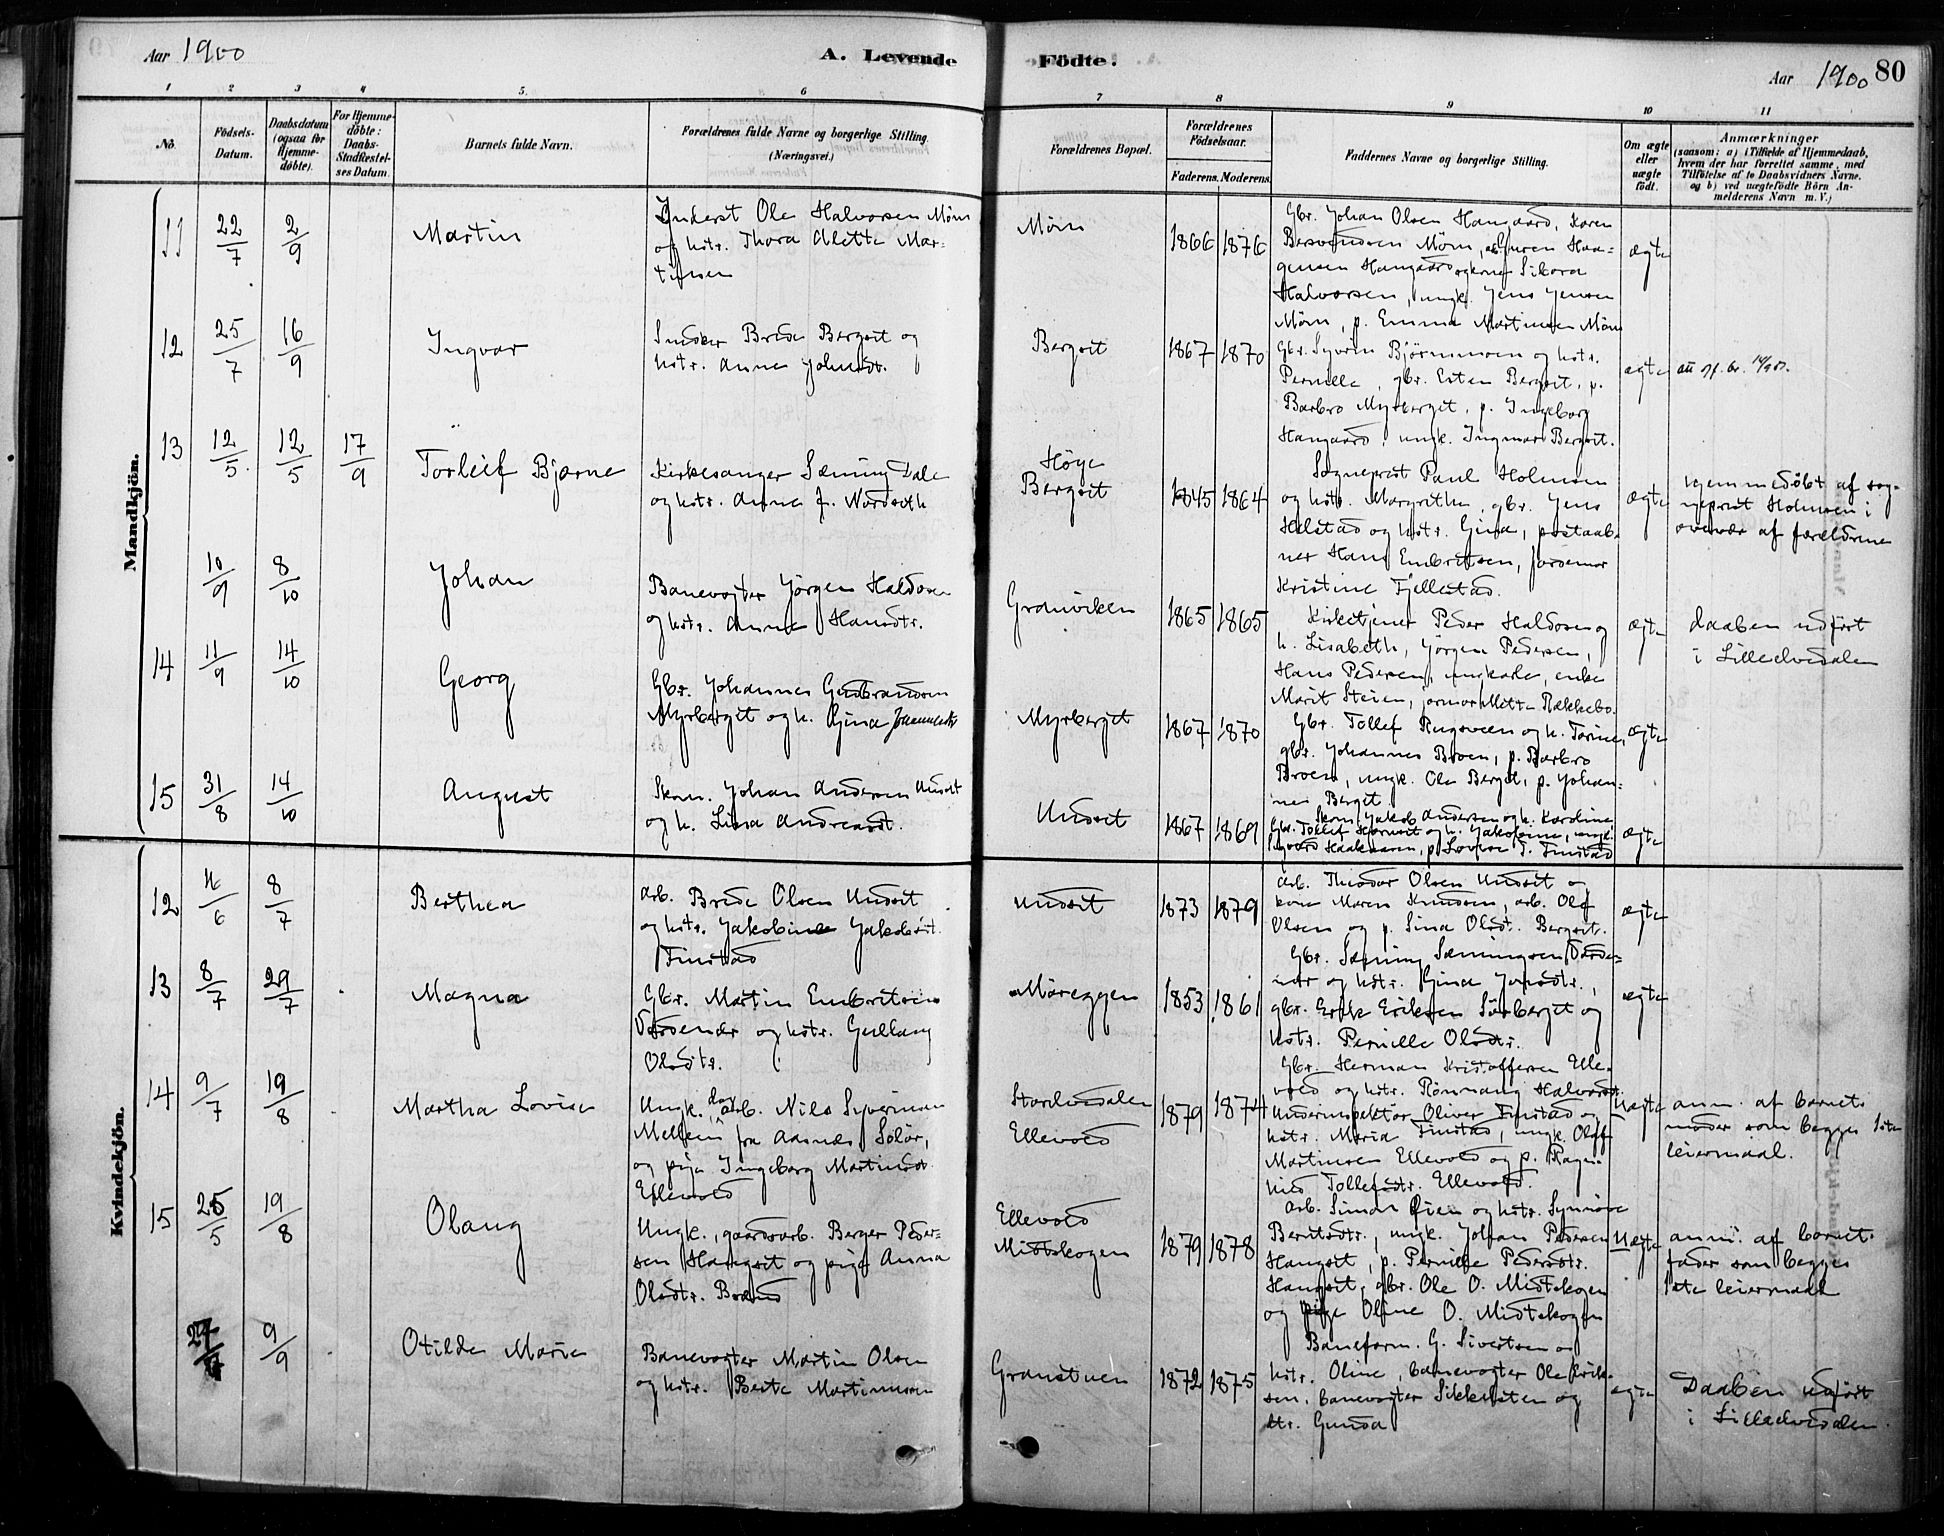 Aar 1900
A. Levende Födte.
Aar 1900 80
1 2 3 4 5. 6 7 8 9 10 11
No.
Födsels-Datum.
Daabsdatum (ogsaa for Hjemmedöbte).
For Hjemmedöbte: Daabs-Stadfæstelses Datum.
Barnets fulde Navn.
Forældrenes fulde Navne og borgerlige Stilling.
(Næringsvei.)
Forældrenes Bopæl.
Forældrenes Födselsaar.
Faderens. Moderens.
Faddernes Navne og borgerlige Stilling.
Om ægte eller uægte födt.
Anmærkninger
(saasom: a) i Tilfælde af Hjemmedaab,
hvem der har forrettet samme, med
Tilföielse af to Daabsvidners Navne.
og b) ved uægtefödte Börn Anmelderens Navn m. V.)
Mandkjön.
11 22/7 2/9 Martin
Inderst Ole Halvorsen Møm
og hstr. Thora Alette Mar-
tinsen
Møm 1866 1876
Gbr. Johan Olsen Haugaard, Karen
Halvorsen, ungk. Jens Jensen
Møm, p. Emma Martinsen Møm
ægte
12 25/7 16/9 Ingvar
Snedker Brede Bergset og
hstr. Anne Johnsdt.
Bergset 1867 1870
Gbr. Syver Bjørnmoen og hstr.
Pernille, gbr. Esten Bergset, p.
Barbro Myrberget, p. Ingeborg
Haugaard, ungk. Ingmar Bergset.
ægte
13 12/5 12/5 17/9 Torleif Bjarne
Kirkesanger Sæming Dale
og hstr. Anne f. Nordseth
Høye
Bergset 1845 1864
Sogneprest Paul Holmsen
og hstr. Margrethe, gbr. Jens
Helstad og hstr. Gina, postaab-
ner Hans Embretsen, jordmor
Kristine Fjellestad.
ægte
hjemmedöbt af sog-
neprest Holmsen i
overvær af forældrene
10/9 8/10 Johan
Banevogter Jörgen Haldosen
og hstr. Anne Hansdtr.
Granviken 1865 1865
Kirketjener Peder Haldosen og
h. Lisabeth, Jörgen Pedersen,
Hans Pedersen, ungkarle, enke
Marit Steien, jormor Mette Rækkebo.
ægte
daaben udført
i Lilleelvedalen
14 11/9 14/10 Georg
Gbr. Johannes Gudbrandsen
Myrberget og h. Gina
Myrberget 1867 1870
Gbr. Tollef Rugsveen og h. Torine,
gbr. Johannes Broen, p. Barbro
Broen, ungk. Ole Berget, p. Johan-
nes Berget.
ægte
15 31/8 14/10 August
Skom. Johan Andersen Undset
og h. Lina Andreasdt.
Undset 1867 1869
Skom. Jakob Andersen og h. Karoline
ægte
Kvindekjön.
12 4/6 8/7 Berthea
Arb. Brede Olsen Undset
og hstr. Jakobine Jakobsdt.
Finstad
Undset 1873 1879
Arb. Theodor Olsen Undset og
kone Maren Knudsen, arb. Olof
Olsen og p. Lina Olsdt. Bergset.
ægte
13 8/7 29/7 Magna
Gbr. Martin Embretsen
og hstr. Gullaug
Olsdtr.
Møreggen 1853 1861
Gbr. Sæming Sæmingsen
og hstr. Gina
gbr. Erik Eriksen Sörberget og
hstr. Pernille Olsdtr.
ægte
14 9/7 19/8 Martha Lovise
Ungk. dagarb. Nils Syversen
fra Aasnæs Solör,
og pige Ingeborg Martinsdt.
Ellevold
Storelvedalen
Ellevold
1879 1874
Gbr. Herman Kristoffersen Elle-
vold og hstr. Rønnaug Halvorsdt.
Underinspektør Oliver Finstad og
hstr. Maria Finstad, ungk. Oluf
Martinsen Ellevold og p. Ragn-
hild Tollefsdtr. Ellevold.
Uægte
anm. af barnets
moder som begges 1ste
leiermaal.
15 25/5 19/8 Olaug
Ungk., gaardsarb. Berger Peder-
sen Haugset og pige Anna
Olsdtr. Brænd
Ellevold
Midtskogen 1879 1878
Arb. Simon Øien og hstr. Synnöve
Berntsdtr., ungk. Johan Pedersen
Haugset, p. Pernille Pedersdtr.
Haugset, gbr. Ole O. Midtskogen
og pige Oline O. Midtskogen
Uægte
anm. af barnets
fader som begges
1ste leiermaal
9/9 Otilde Marie
Banevogter Martin Olsen
og hstr. Berte Martinusen
Granstuen 1872 1875
Baneform. G. Sivertsen og
hstr. Oline, banevogter Ole Erik-
sen, banevogter og
str. Gunda
ægte
Daaben udført
i Lilleelvedalen.